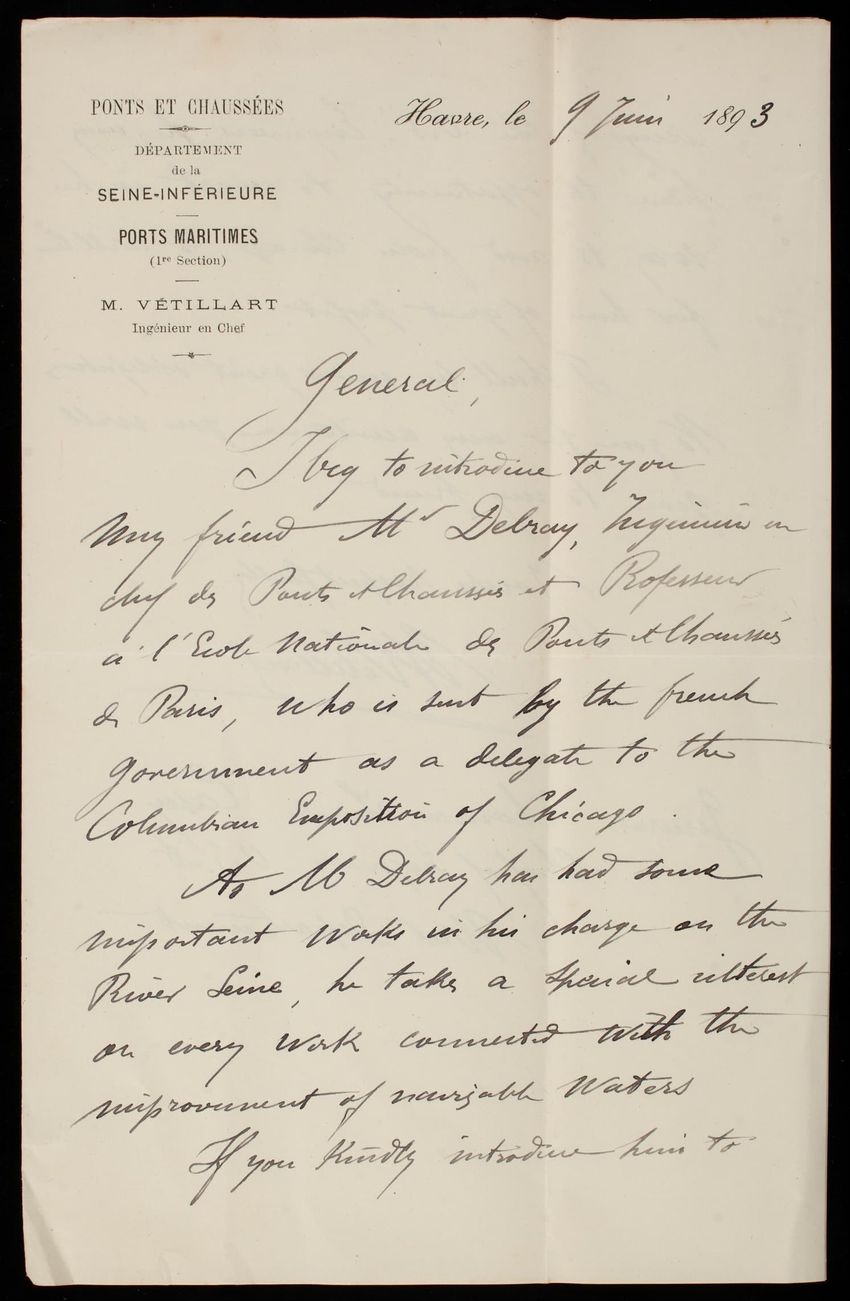 PONTS ET CHAUSSÉES
DÉPARTEMENT
de la
SEINE-INFÉRIEURE
PORTS MARITIMES
(1re Section)
M. VÉTILLART
Ingénieur en Chef
Havre, le 9 Juin 1893
General,
I beg to introduce to you
My friend Mr Debray, Ingénieur en
chef des Ponts et Chaussées et Professeur
à l'Ecole Nationale des Ponts et Chaussées
de Paris, who is sent by the french
government as a delegate to the
Columbian Exposition of Chicago.
As M Debray has had some
important works in his charge on the
River Seine, he takes a special interest
on every work connected with the
improvement of navigable Waters
If you Kindly introduce him to